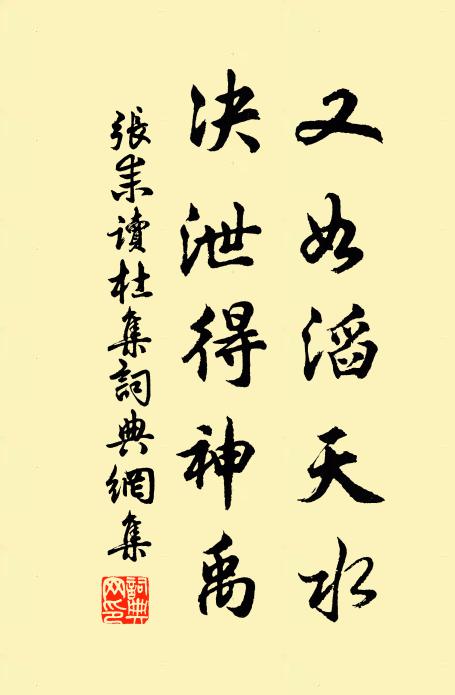 又如滔天水
决泄得神禹
張耒讀杜集詞典網集
詞典網印